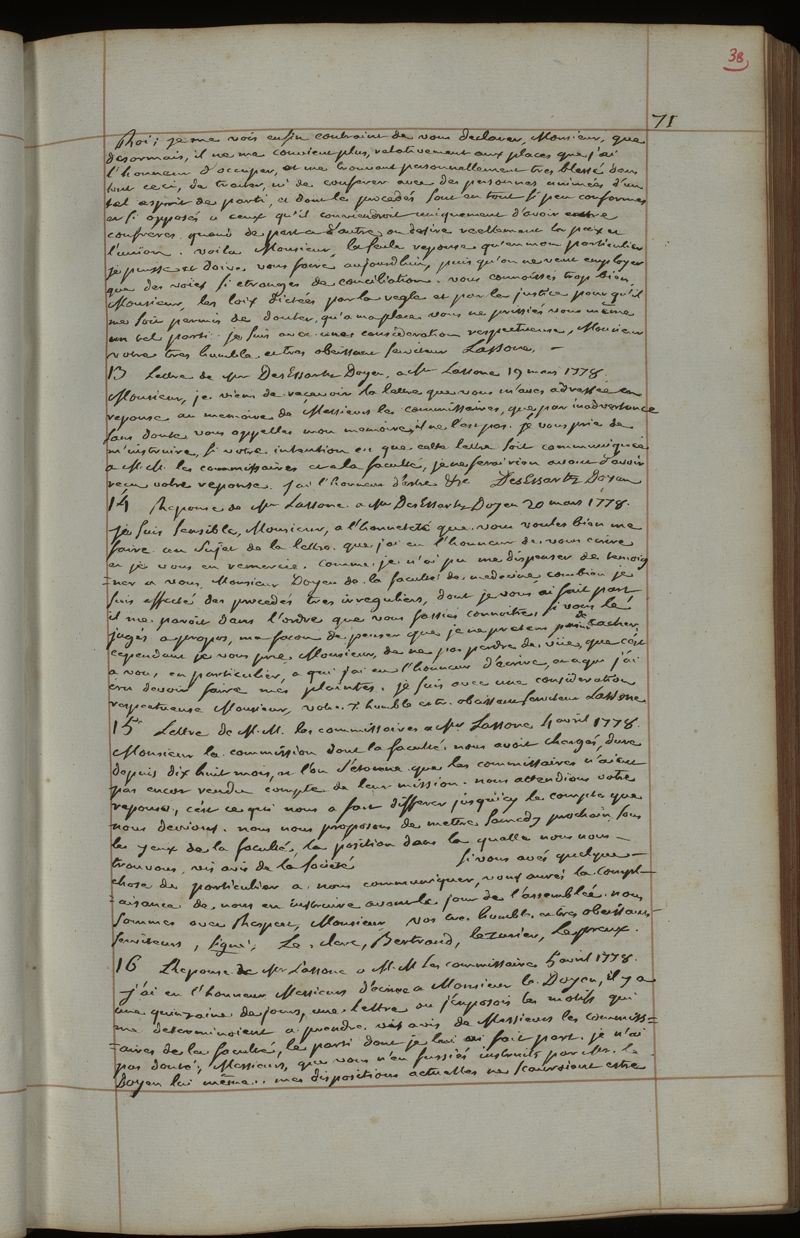 38
71
Roi; je me vois enfin contraint de vous declarer, Monsieur, que
desormais, il ne me convient plus, relativement aux places que j'ai
l'honneur d'occuper, et me trouvant personnellement tres blessé dans
tout ceci, de traiter, ni de conferer avec des personnes animées d'un
tel esprit de parti, et dont les procedés sont en tout si peu conformes
et si opposés a ceux qu'il conviendroit uniquement d'avoir entre
confréres, quand de part et d'autre on desire reellement la paix et
l'union. voila Monsieur, la seule reponse qu'en mon particulier
je puisse et doive vous faire aujourdhui, puis qu'on ne veut employer
que des voies si etranges de conciliation. vous connoissés trop bien
Monsieur, les loix dictées par la regle et par la justice pour qu'il
me soit permis de douter, qu'a ma place vous ne prissiés vous même
un tel parti. je suis avec une consideration respectueuse, Monsieur
votre tres humble et tres obeissant serviteur Lassone. -
13 Lettre de Mr DesEssartz Doyen, a Mr Lassone 19 mars 1778.
Monsieur, je viens de recevoir la lettre que vous m'avés adressée en
reponse au memoire de Messieurs les commissaires, que par inadvertence
sans doute vous appellés mon memoire, il ne l'est pas. je vous prie de
m'instruire, si votre intention est que cette lettre soit communiquée
a M.M. les commissaires et a la faculté, je ne ferai rien avant d'avoir
recu votre reponse. j'ai l'honneur d'estre &c DesEssartz Doyen
14 Reponse de Mr Lassone a Mr DesEssartz Doyen 20 mars 1778.
je suis sensible, Monsieur, a l'honneteté que vous voulés bien me
faire au sujet de la lettre que j'ai eu l'honneur de vous ecrire
et je vous en remercie. comme je n'ai pu me dispenser de temoig
=ner a vous, Monsieur Doyen de la faculté de medecine combien je
suis affecté des procedés tres irreguliers, dont je vous ai fait part
il me paroit dans l'ordre que vous fassiés connoitre, si vous le
jugés a propos, ma facon de penser que je ne pretens point de cacher,
cependant je vous prie, Monsieur, de ne pas perdre de vüe, que c'est
a vous, en particulier, a qui j'ai eu l'honneur d'écrire, et a qui j'ai
cru devoir faire mes plaintes. je suis avec une consideration
respectueuse Monsieur, votre t. humble et tr. obeissant serviteur Lassone
15 Lettre de M.M. les commissaires a Mr Lassone 4 avril 1778.
Monsieur la commission dont la faculté nous avoit chargés, dure
depuis dix huit mois, et l'on s'étonne que les commissaires n'aient
pas encor rendu compte de leur mission. nous attendions votre
reponse, c'est ce qui nous a fait differer jusqu'icy le compte que
nous devions. nous nous proposons de mettre samedy prochain sous
les yeux de la faculté, la position dans la quelle nous nous -
trouvons, vis avis de la societé si vous avés quelque -
chose de particulier a nous communiquer, vous aurés la compl-
=aisance de nous en instruire avant le jour de l'assemblée. nous
sommes avec Respect, Monsieur vos tres humbles et tres obeissans
serviteurs, signé, Le clerc, Bertrand, lezurier, Lepreux.
16 Reponse de Mr Lassone a M.M Les commissaires 5 avril 1778.
j'ai eu l'honneur Messieurs d'écrire a Monsieur le Doyen, il y a
une quinzaine de jours, une lettre ou j'exposois les motifs qui
me determinoient a prendre vis avis de Messieurs les commiss=
=aires de la faculté, le parti dont je lui ai fait part. je n'ai
pas douté, Messieurs, que vous n'en fussiés instruits par Mr. le
Doyen lui même. mes dispositions actuelles ne scauroient estre